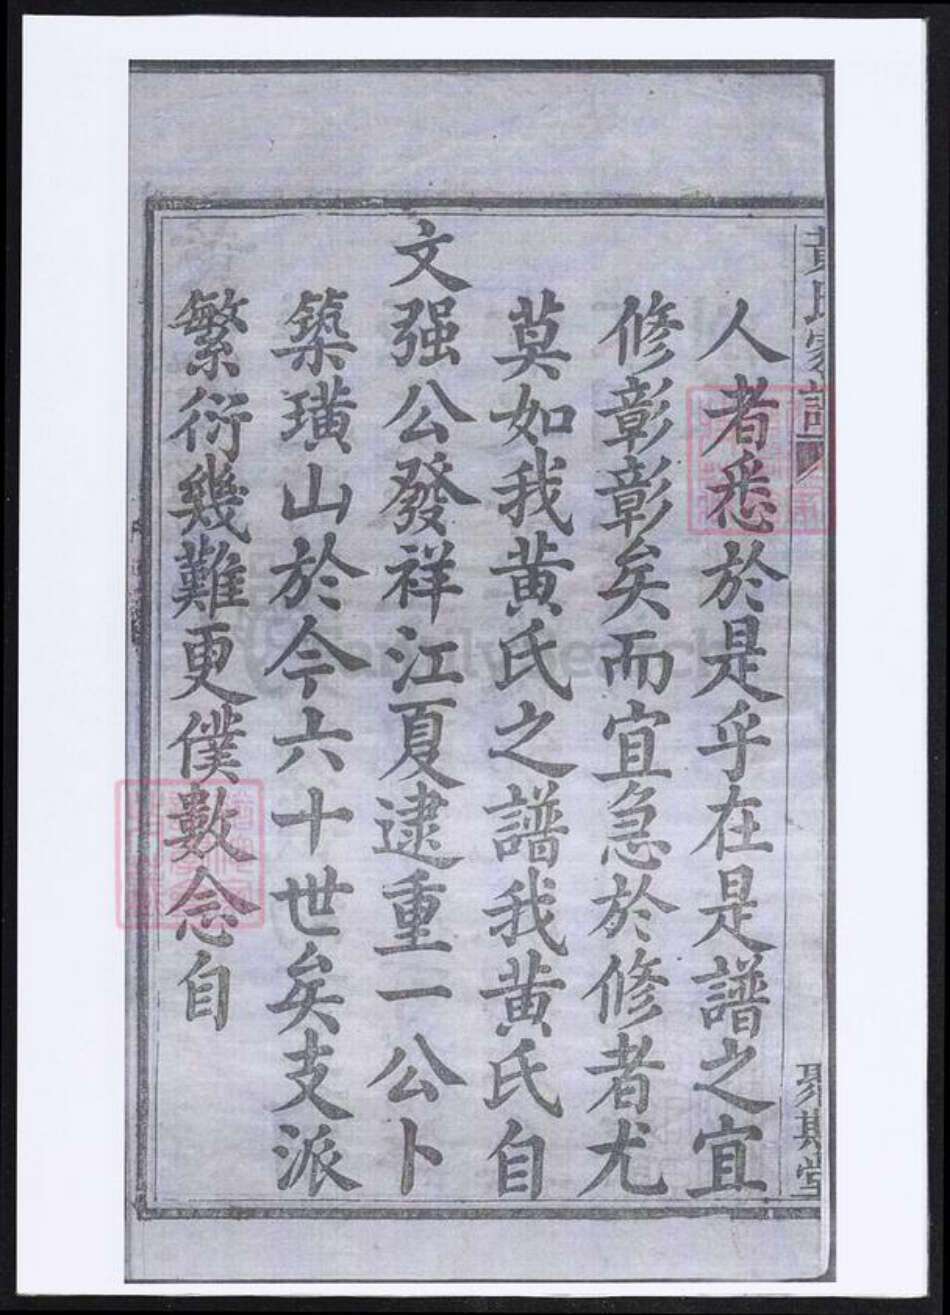 黄氏家譜
人者悉於是乎在是譜之宜
修彰彰矣而宜急於修者尤
莫如我黄氏之譜我黄氏自
文强公發祥江夏逮重一公卜
築璜山於今六十世矣支派
繁衍幾難更僕數念自
斯堂
FamilySearch